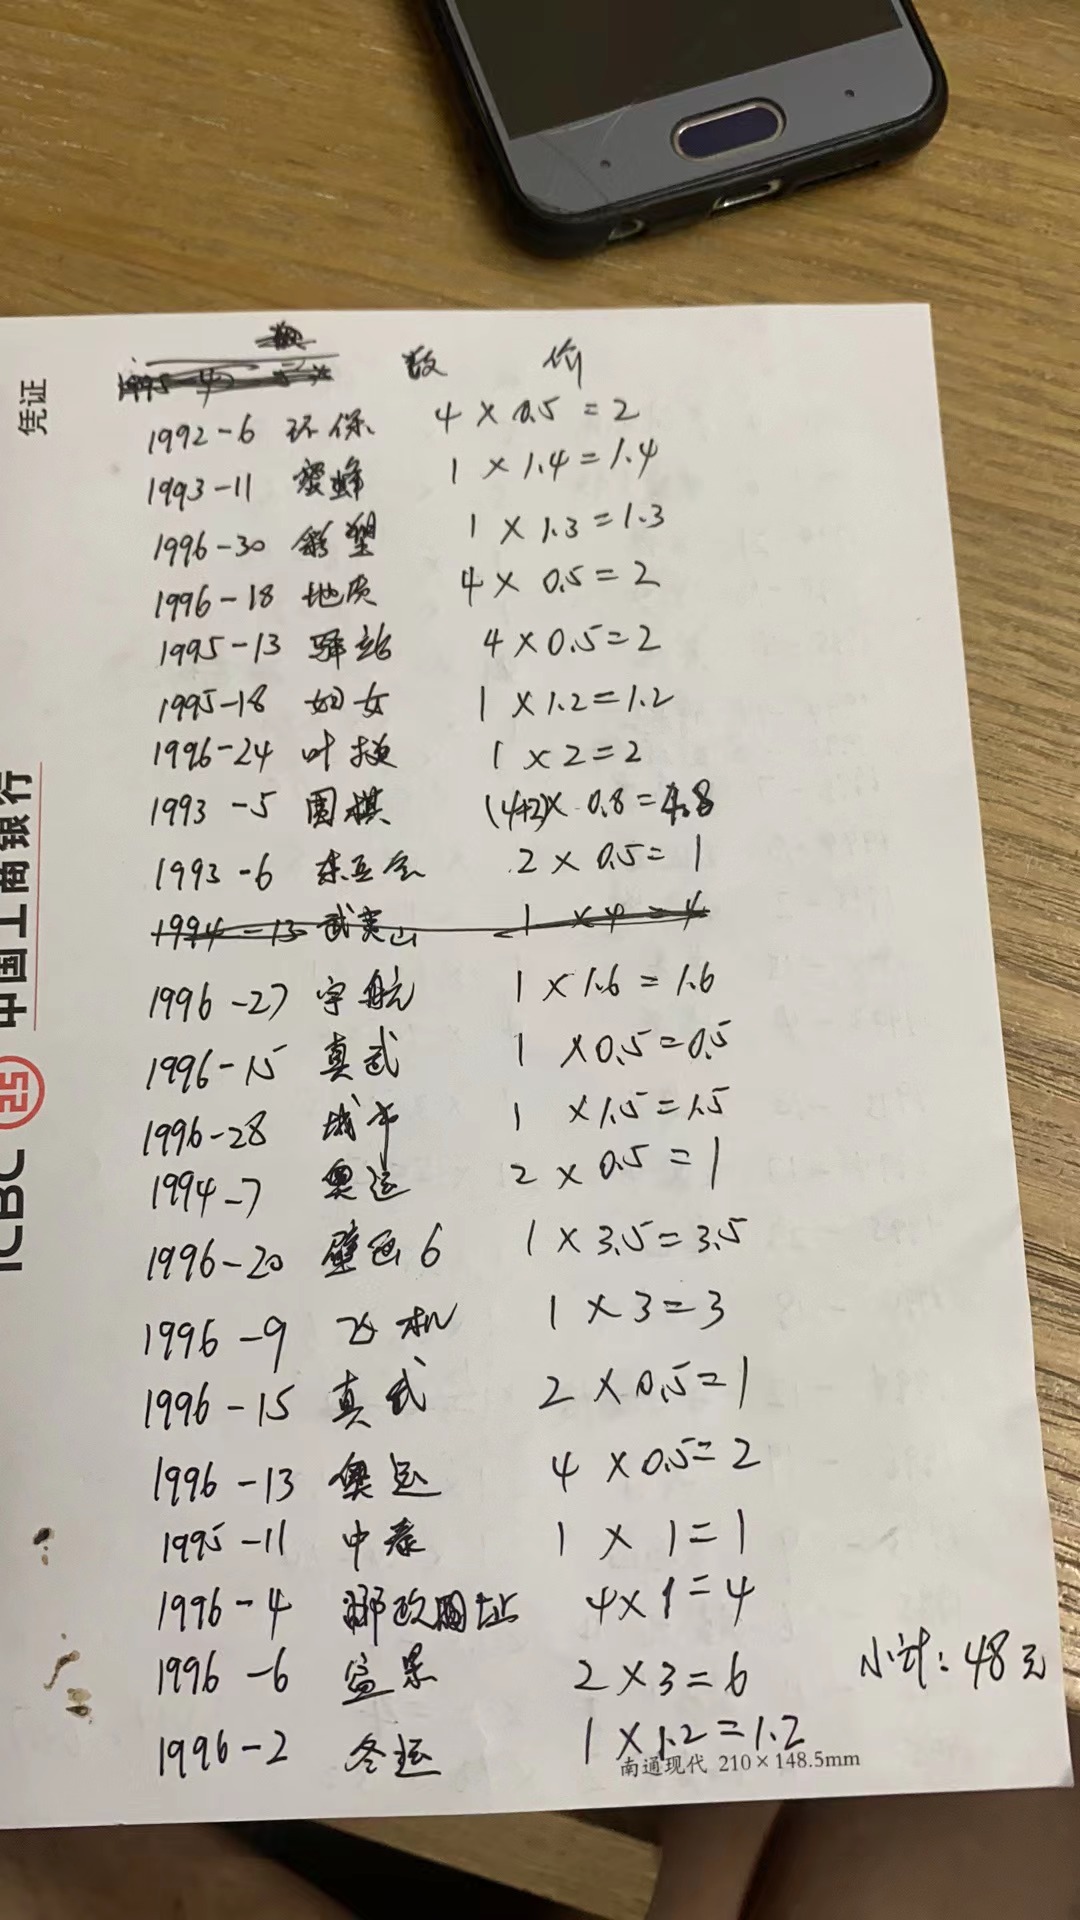 数 价
1992-6 环保 4×0.5=2
1993-11 蜜蜂 1×1.4=1.4
1996-30 彩塑 1×1.3=1.3
1996-18 地质 4×0.5=2
1995-13 驿站 4×0.5=2
1995-18 妇女 1×1.2=1.2
1996-24 叶挺 1×2=2
1993-5 围棋 (4+2)×0.8=4.8
1993-6 东亚会 2×0.5=1
1994-13 武夷山 1×4=4
1996-27 宇航 1×1.6=1.6
1996-15 真武 1×0.5=0.5
1996-28 城市 1×1.5=1.5
1994-7 奥运 2×0.5=1
1996-20 壁画6 1×3.5=3.5
1996-9 飞机 1×3=3
1996-15 真武 2×0.5=1
1996-13 奥运 4×0.5=2
1995-11 中泰 1×1=1
1996-4 邮政 4×1=4
1996-6 2×3=6
小计:48元
1996-2 冬运 1×1.2=1.2
南通现代 210×148.5mm
凭证
ICBC 中国工商银行